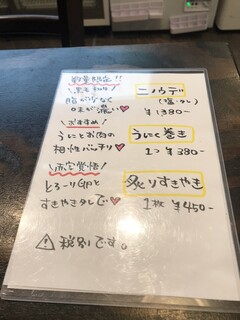 数量限定!!
黒毛和牛
脂が少なく
味が濃い♥
ニノウデ
(塩・タレ)
¥1380-
\おすすめ/
うにとお肉の
相性バッチリ♥
うにく巻き
1つ¥380-
\赤字覚悟/
とろーり卵と
すきやきタレで♥
炙りすきやき
1枚¥450-
⚠税別です。